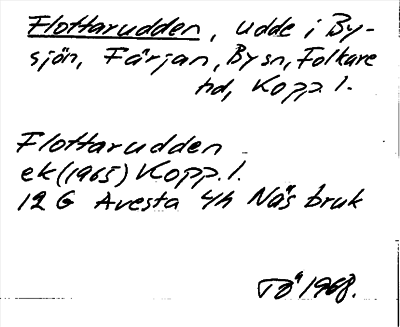 Flottarudden, udde i By-
sjön, Färjan, By sn, Folkare
hd, Kopp. l.
Flottarudden
ek (1965) Kopp. l.
12 G Avesta 4h Näs bruk
1968.